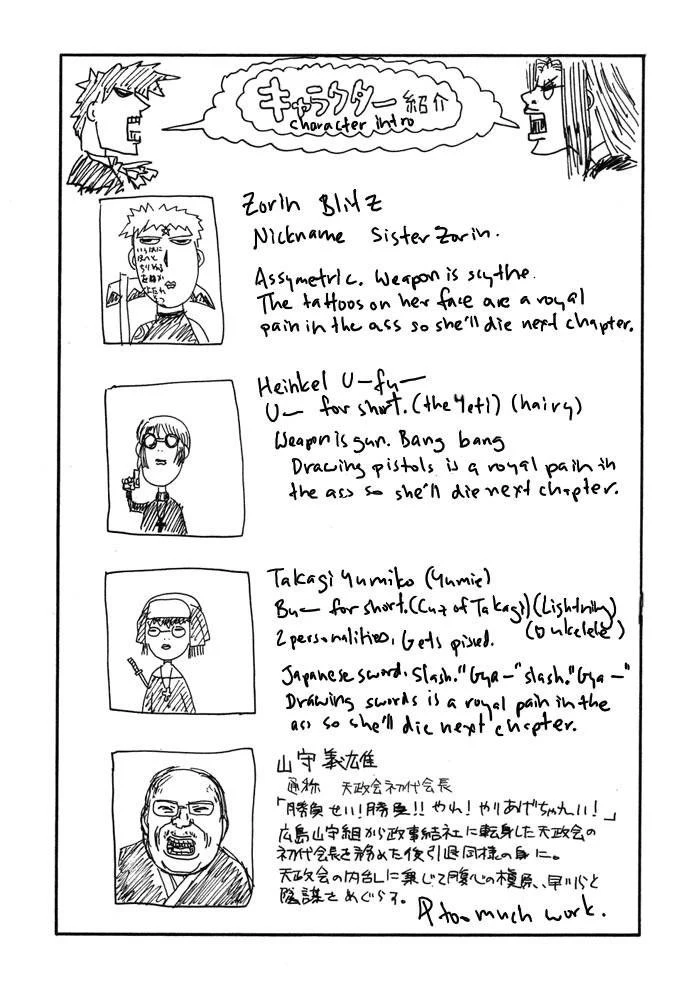 キャラクター紹介
character intro
Zorin Blitz
Nickname Sister Zorin.
Assymetric. Weapon is scythe.
The tattoos on her face are a royal
pain in the ass so she'll die next chapter.
いろはに
ほへと
ちりぬる
Heinkel U—fu—
U— for short. (the Yeti) (hairy)
Weapon is gun. Bang bang
Drawing pistols is a royal pain in
the ass so she'll die next chapter.
Takagi Yumiko (Yumie)
Bu— for short. (Cuz of Takagi) (Lightning)
2 personalities. Gets pissed.
(Ukelele)
Japanese sword. Slash. "Gya—" slash. "Gya—"
Drawing swords is a royal pain in the
ass so she'll die next chapter.
山守義雄
通称 天政会初代会長
「勝負せい！勝負！！やれ！やりあげちゃれい！」
広島山守組から政事結社に転身した天政会の
初代会長を務めた後引退同様の身に。
天政会の内乱に乗じて腹心の槙原、早川らと
陰謀をめぐらす。
too much work.